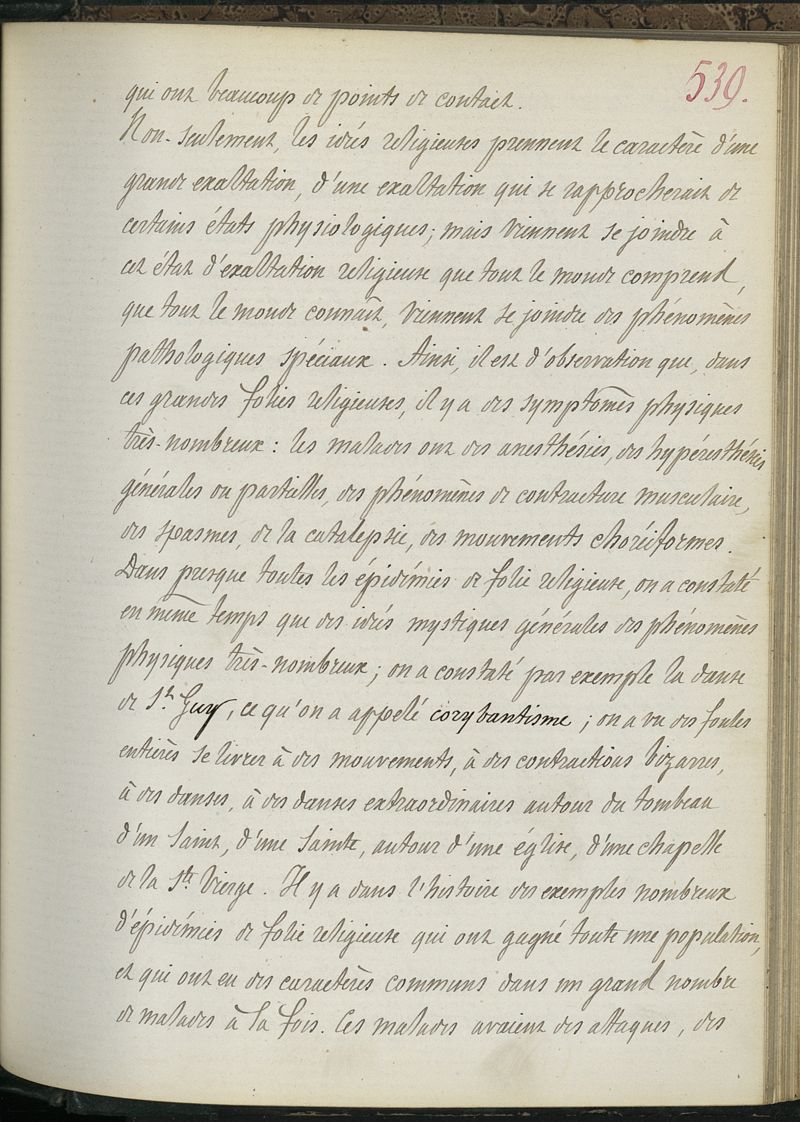 539.
qui ont beaucoup de points de contact.
Non-seulement, les idées religieuses prennent le caractère d'une
grande exaltation, d'une exaltation qui se rapprocherait de
certains états physiologiques; mais viennent se joindre à
cet état d'exaltation religieuse que tout le monde comprend,
que tout le monde connaît, viennent se joindre des phénomènes
pathologiques spéciaux. Ainsi, il est d'observation que, dans
ces grandes folies religieuses, il y a des symptômes physiques
très-nombreux: les malades ont des anesthésies, des hypéresthésies
générales ou partielles, des phénomènes de contracture musculaire,
des spasmes, de la catalepsie, des mouvements choréiformes.
Dans presque toutes les épidémies de folie religieuse, on a constaté
en même temps que des idées mystiques générales des phénomènes
physiques très-nombreux; on a constaté par exemple la danse
de St. Guy, ce qu'on a appelé corybantisme; on a vu des foules
entières se livrer à des mouvements, à des contractions bizarres,
à des danses, à des danses extraordinaires autour du tombeau
d'un Saint, d'une Sainte, autour d'une église, d'une chapelle
de la Ste Vierge. Il y a dans l'histoire des exemples nombreux
d'épidémies de folie religieuse qui ont gagné toute une population,
et qui ont eu des caractères communs dans un grand nombre
de malades à la fois. Ces malades avaient des attaques, des